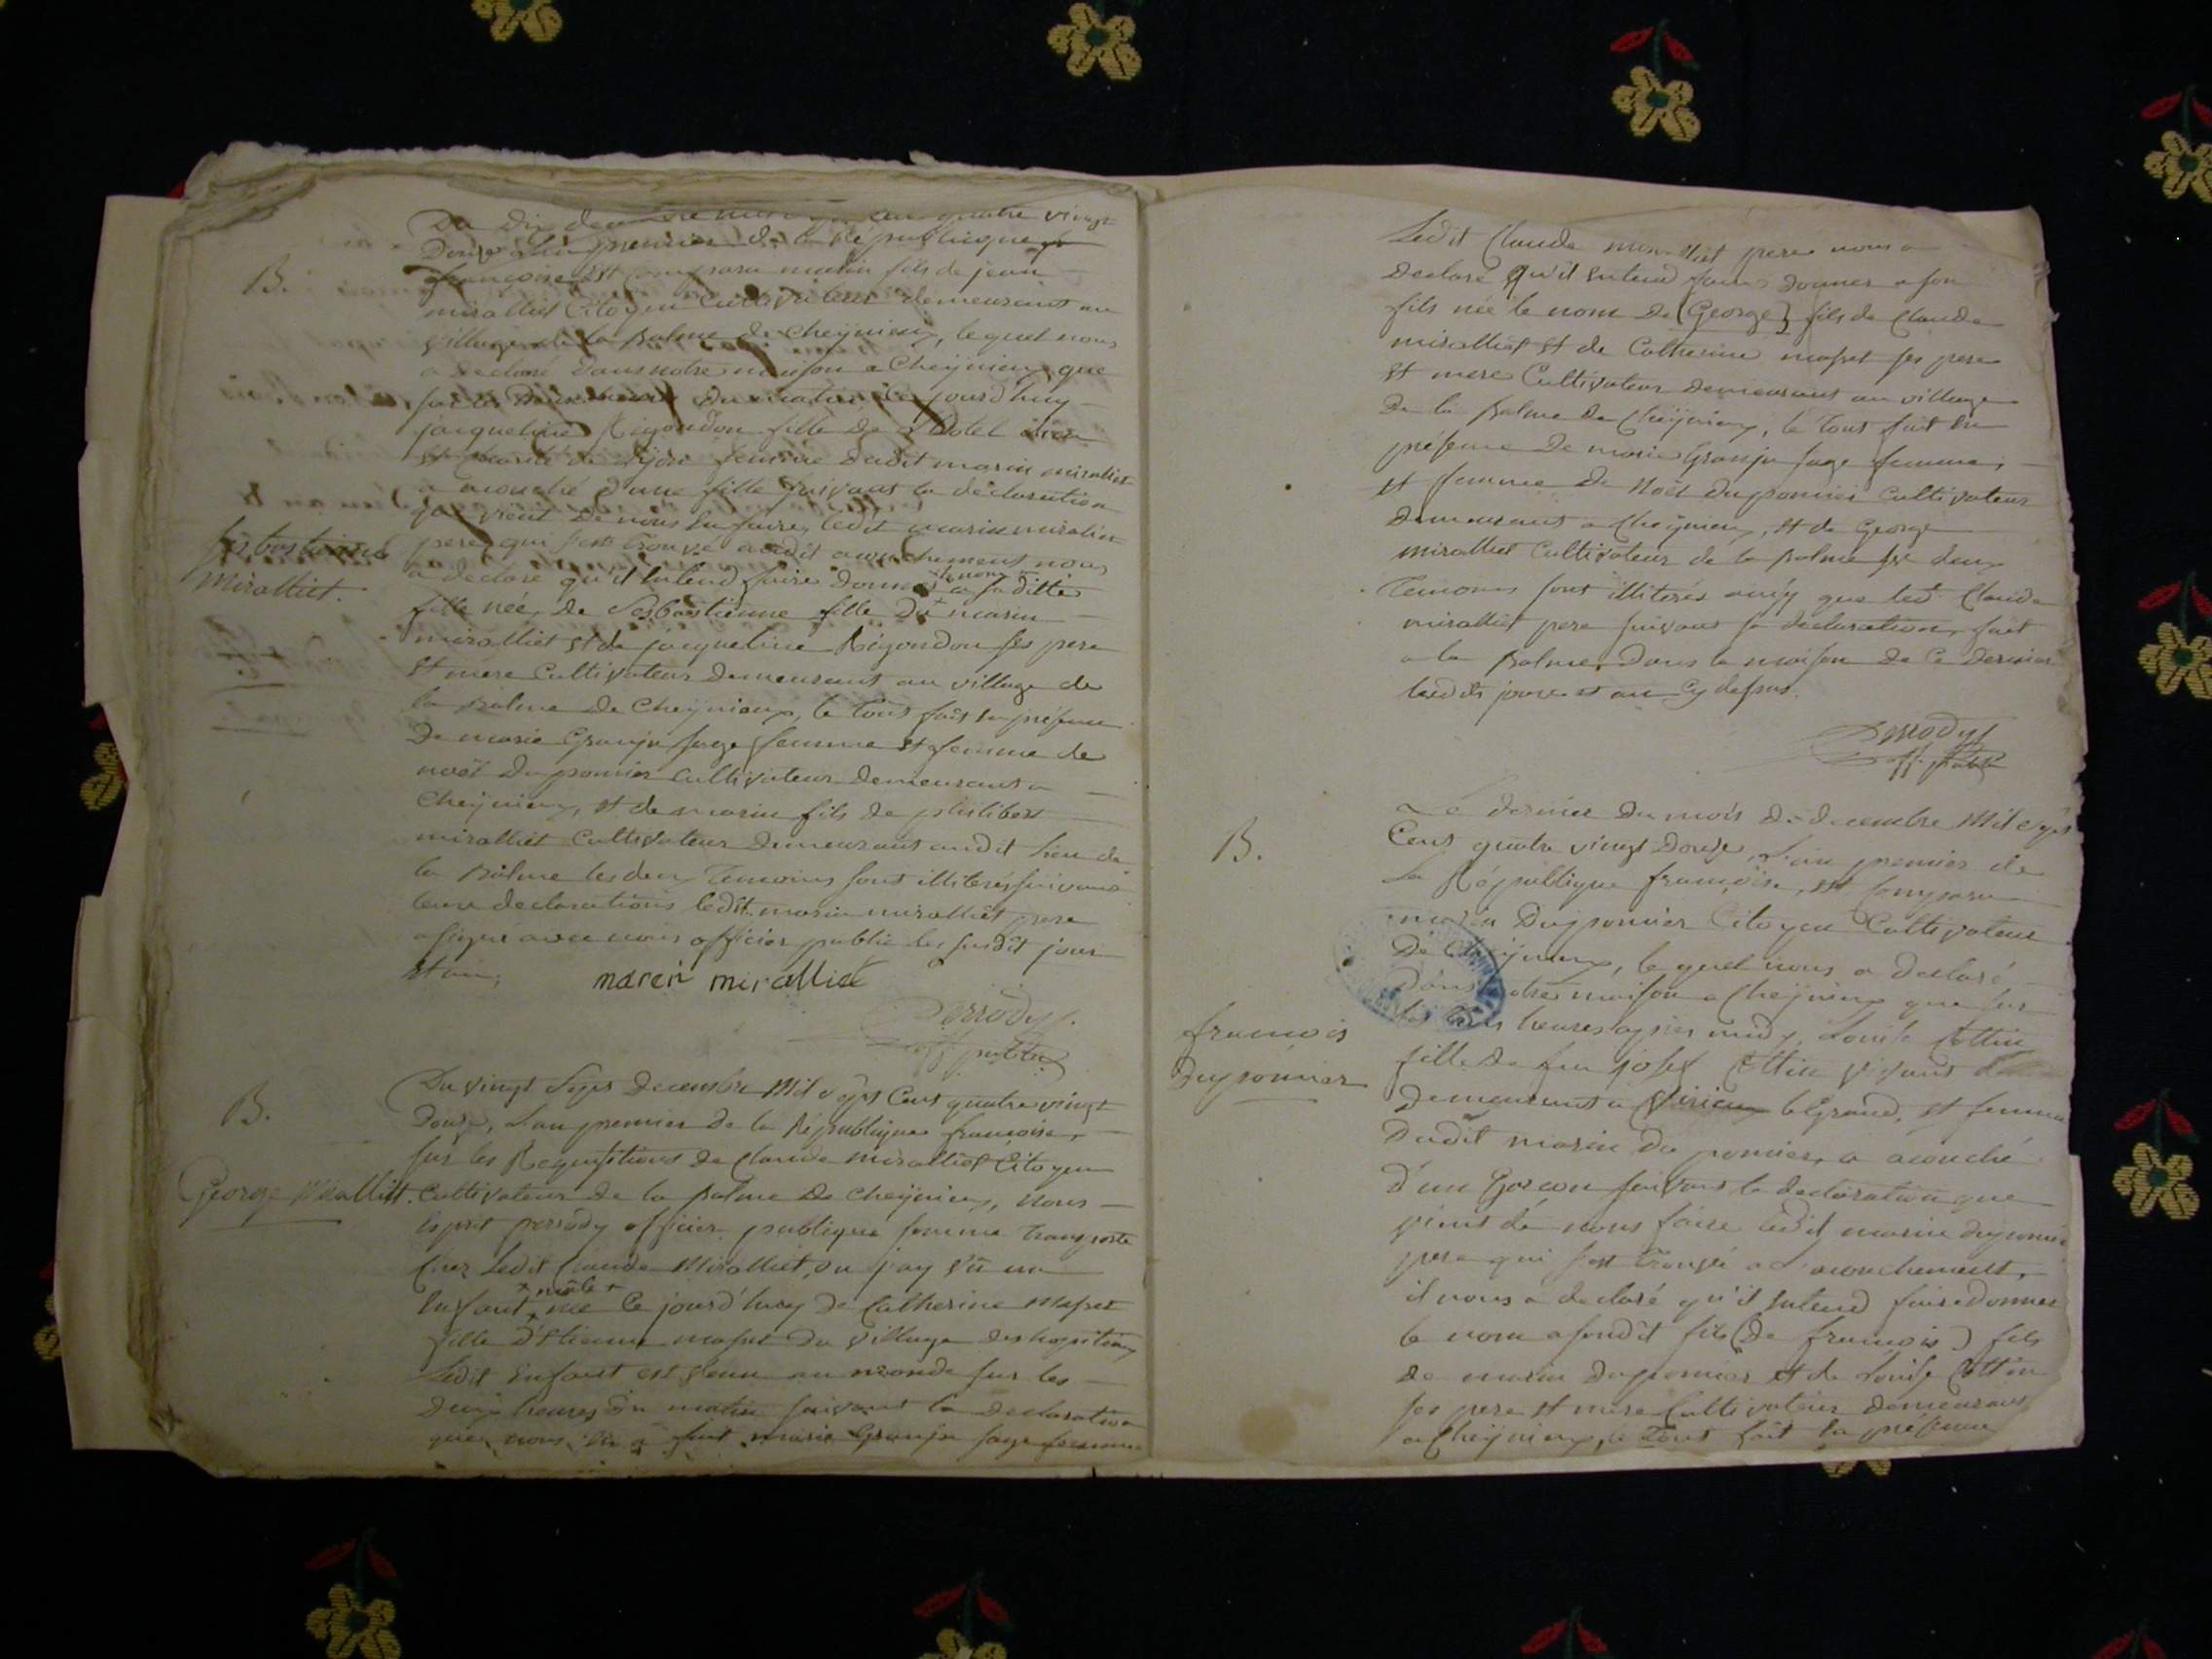 quatre vingt
Douze L'an premier de la République
françoise Est Comparu marin fils de jean
B.
miralliet Citoyen Cultivateur demeurant au
village de la palme de cheÿnieux, lequel nous
a declaré dans notre maison a Cheÿnieux, que
sur les heures du matin ce jourd'huy
jacqueline Rigondon fille de L'hotel dieu
et charité de femme dudit marin miralliet
a acouché d'une fille suivant la declaration
que vient de nous En faire, ledit marin miralliet
pere qui s'est trouvé audit acouchement nous
Sesbastienne
Miralliet.
a declaré qu'il Entend faire donner le nom a sa ditte
fille née, de Sesbastienne fille du marin
miralliet et de jacqueline Rigondon ses pere
et mere Cultivateur demeurant au village de
la palme de Cheÿnieux, le tout fait En présence
De marie Granju sage femme et femme de
noël Duponier cultivateur demeurant a
Cheÿnieux, et de marin fils de philibert
miralliet Cultivateur demeurant audit Lieu de
la palme les deux temoins sont illiterés suivant
leurs declarations ledit marin miralliet pere
a signé avec nous officier public les susdit jour
et an,
maren miralliet
Perrody
off public
B.
Du vingt Sept Decembre Mil Sept Cent quatre vingt
Douze, L'an premier de la République francoise,
sur les Requisitions de Claude miralliet Citoyen
George Miralliet.
Cultivateur de la palme de cheÿnieux, nous
Esprit perrody officier publique somme transporté
Chez Ledit Claude Miralliet, ou j'ay vû un
+ mâle +
Enfant née ce jourd'huy de Catherine Masset
fille d'Etienne masset du village des hopitaux
Ledit Enfant est venu au monde sur les
Deux heures du matin suivant la declaration
que nous En a fait marie Granju sage femme
Ledit Claude miralliet pere nous a
declaré qu'il Entend faire donner a son
fils née le nom de (George) fils de Claude
miralliet et de Catherine masset ses pere
et mere Cultivateur demeurant au village
De la palme de Cheÿnieux, le tout fait En
présence De marie Granju sage femme,
et femme de Noël Duponier Cultivateur
demeurant a Cheÿnieux, et de George
miralliet Cultivateur de la palme les deux
Temoins sont illiterés ausy que led. Claude
miralliet pere suivant sa declaration, fait
a la palme, dans la maison de ce dernier
lesdits jour et an Cy dessus.
Perrody
off. public
Le dernier du mois de decembre Mil Sept
B.
Cent quatre vingt Douze, L'an premier de
La République françoise, est Comparu
marin Duponier Citoyen Cultivateur
De Cheÿnieux, le quel nous a declaré
Dans notre maison a Cheÿnieux que sur
françois
Duponier
les heures apres midy, Louise Cottin
fille de feu josef Cottin vivant
demeurant a Virieux le Grand, et femme
Dudit marin Duponier, a acouché
D'un Garcon suivant la declaration que
vient de nous faire ledit marin duponier
pere qui s'est trouvé a L'acouchement,
il nous a declaré qu'il Entend faire donner
le nom a sondit fils (de françois) fils
de marin duponier et de Louise Cottin
ses pere et mere Cultivateur demeurant
a Cheÿnieux, le Tout fait En présence